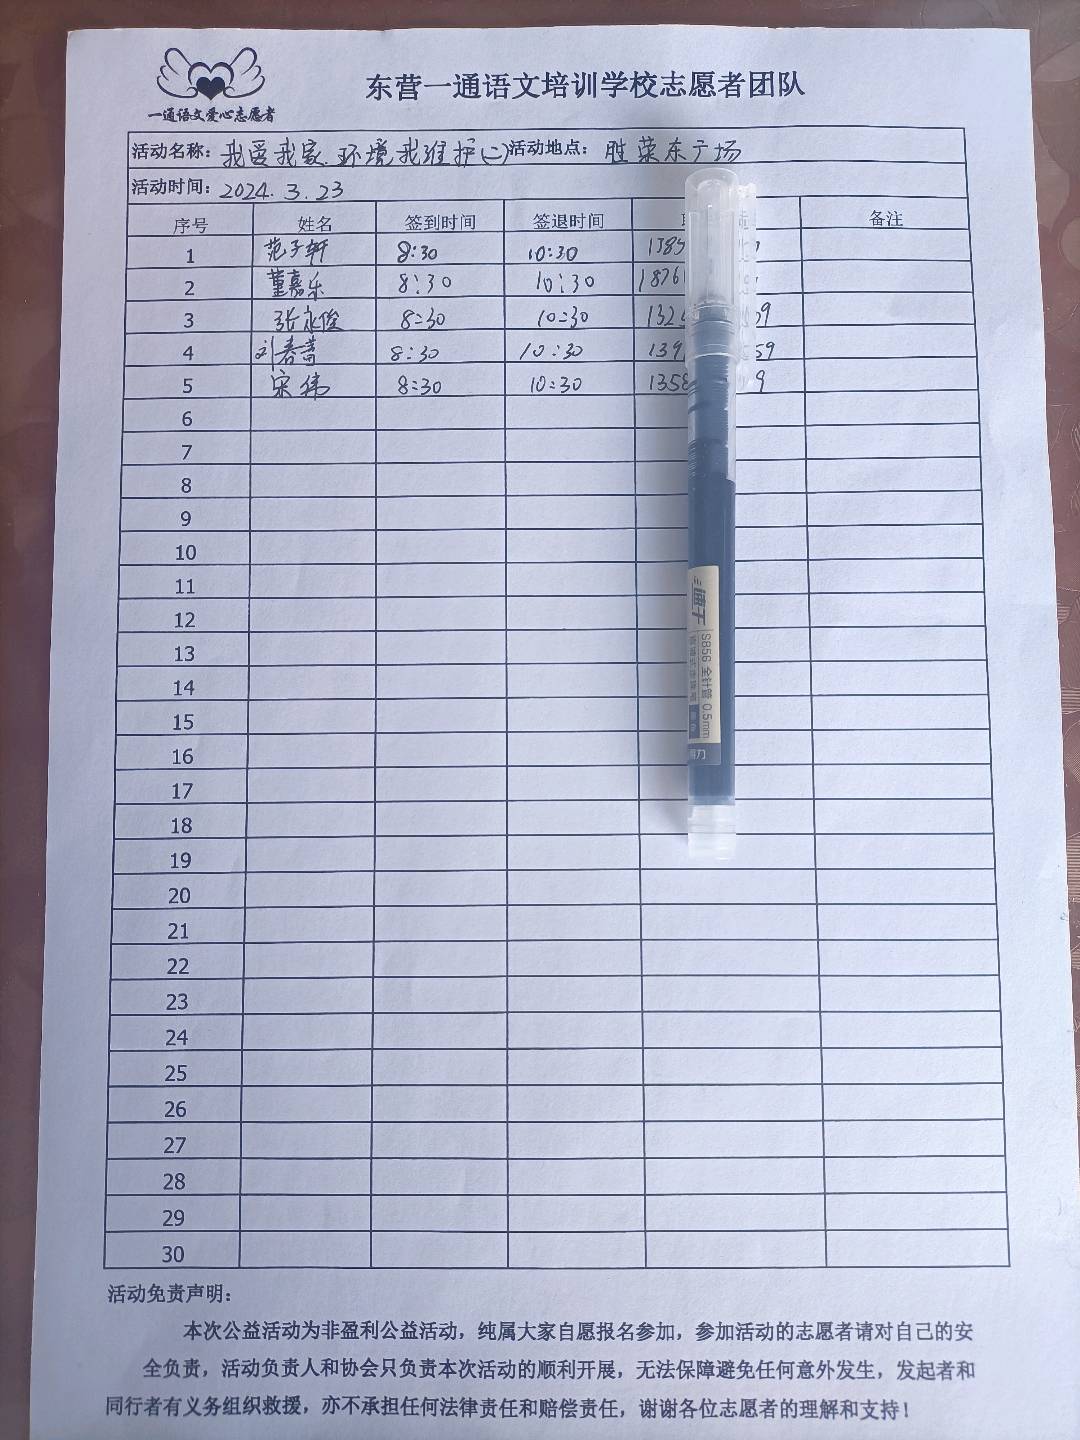 一通语文爱心志愿者
东营一通语文培训学校志愿者团队
活动名称：我爱我家.环境我维护(二) 活动地点：胜莱东广场
活动时间：2024.3.23
序号 姓名 签到时间 签退时间 备注
1 范子轩 8:30 10:30
2 董嘉乐 8:30 10:30
3 张永俊 8:30 10:30
4 刘春萱 8:30 10:30
5 宋伟 8:30 10:30
6
7
8
9
10
11
12
13
14
15
16
17
18
19
20
21
22
23
24
25
26
27
28
29
30
S856 全针管 0.5mm
活动免责声明：
本次公益活动为非盈利公益活动，纯属大家自愿报名参加，参加活动的志愿者请对自己的安
全负责，活动负责人和协会只负责本次活动的顺利开展，无法保障避免任何意外发生，发起者和
同行者有义务组织救援，亦不承担任何法律责任和赔偿责任，谢谢各位志愿者的理解和支持！